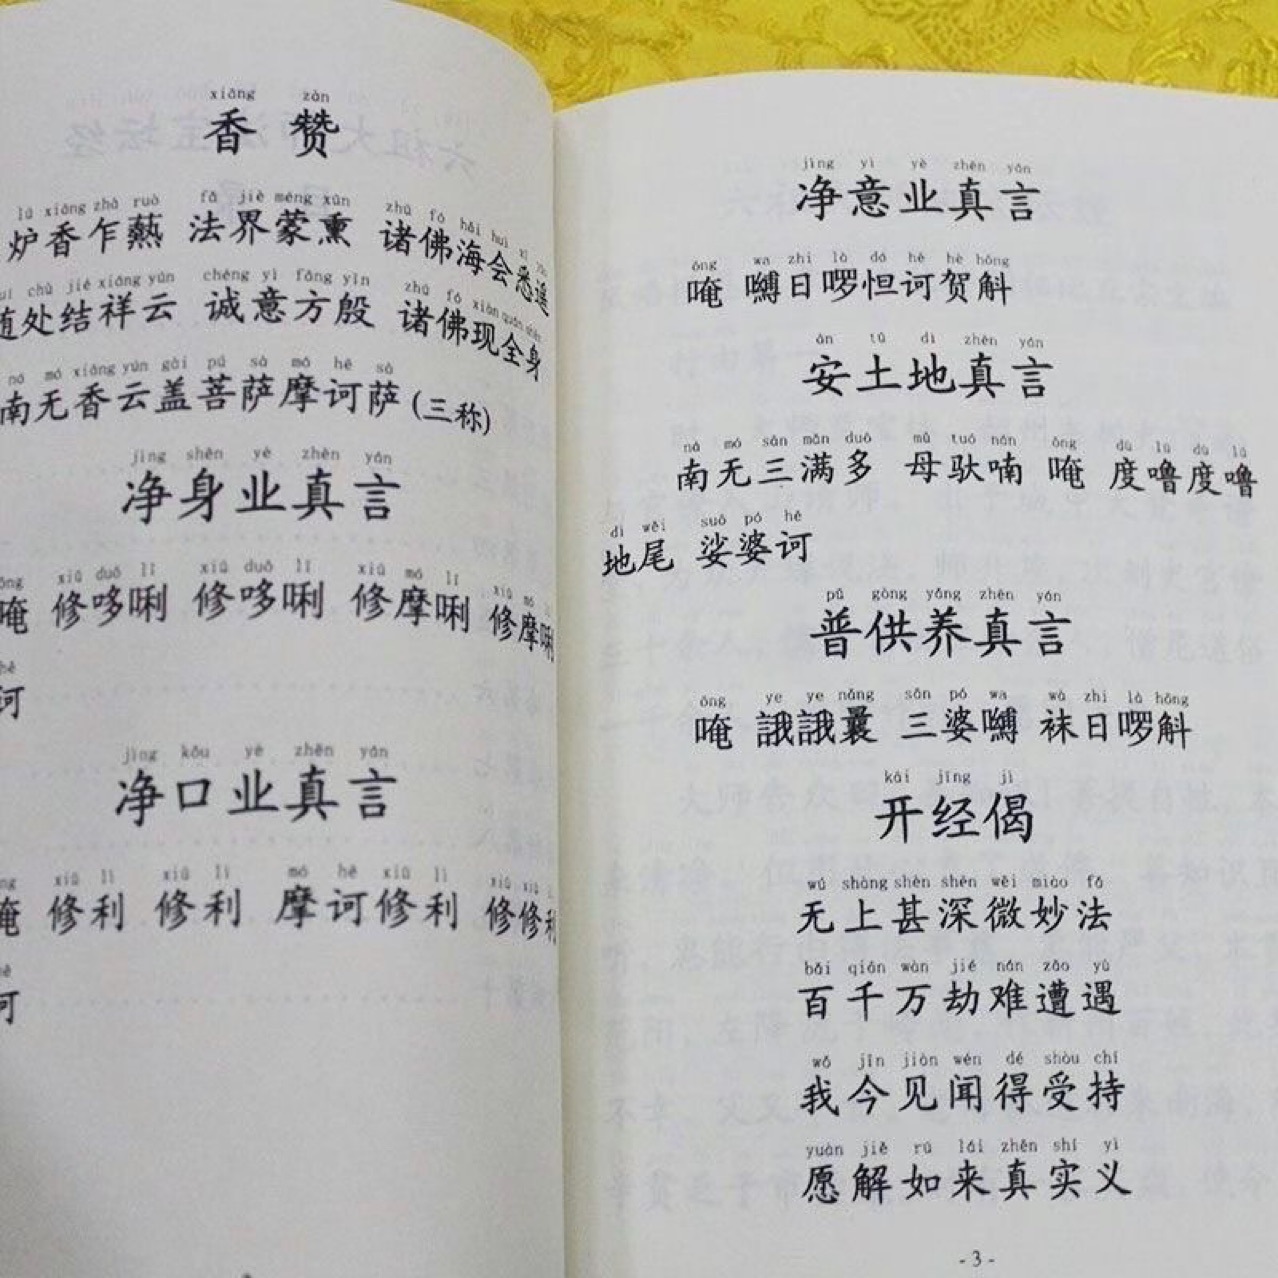 xiāng zàn
香 赞
lú xiāng zhà ruò fǎ jiè méng xūn zhū fó hǎi huì xī yáo
炉香乍爇 法界蒙熏 诸佛海会悉遥
chù jié xiáng yún chéng yì fāng yīn zhū fó xiàn quán shēn
随处结祥云 诚意方殷 诸佛现全身
ná mó xiāng yún gài pú sà mó hē sà
南无香云盖菩萨摩诃萨(三称)
jìng shēn yè zhēn yán
净身业真言
ōng xiū duō lī xiū duō lī xiū mó lī xiū mó
唵 修哆唎 修哆唎 修摩唎 修摩唎
hē
诃
jìng kǒu yè zhēn yán
净口业真言
xiū lì xiū lì mó hē xiū lì xiū xiū
唵 修利 修利 摩诃修利 修修利
诃
jìng yì yè zhēn yán
净意业真言
ōng wa zhī là dá hē hè hōng
唵 嚩日啰怛诃贺斛
ān tǔ dì zhēn yán
安土地真言
ná mó sān mǎn duō mǔ tuó nán ōng dù lū dù lū
南无三满多 母驮喃 唵 度噜度噜
dì wěi suō pó hē
地尾 娑婆诃
pǔ gòng yǎng zhēn yán
普供养真言
ōng ye ye nǎng sān pó wa wà zhī là hōng
唵 誐誐曩 三婆嚩 袜日啰斛
kāi jīng jì
开经偈
wú shàng shèn shēn wēi miào fǎ
无上甚深微妙法
bǎi qiān wàn jié nán zāo yù
百千万劫难遭遇
wǒ jīn jiàn wén dé shòu chí
我今见闻得受持
yuàn jiě rú lái zhēn shí yì
愿解如来真实义
- 3 -